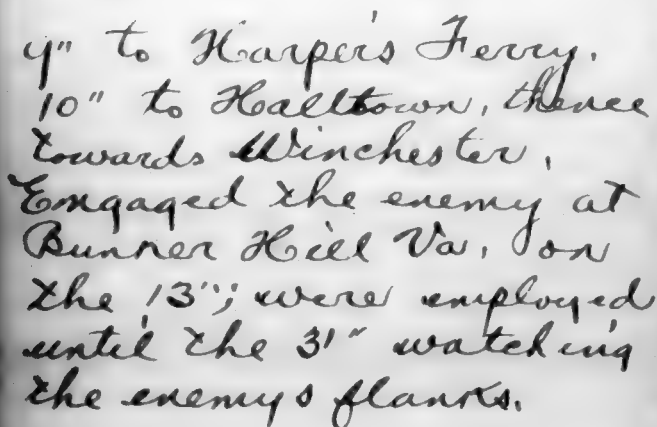 9" to Harper's Ferry.
10" to Halltown, thence
towards Winchester.
Engaged the enemy at
Bunker Hill Va. on
the 13"; were employed
until the 31" watching
the enemys flanks.